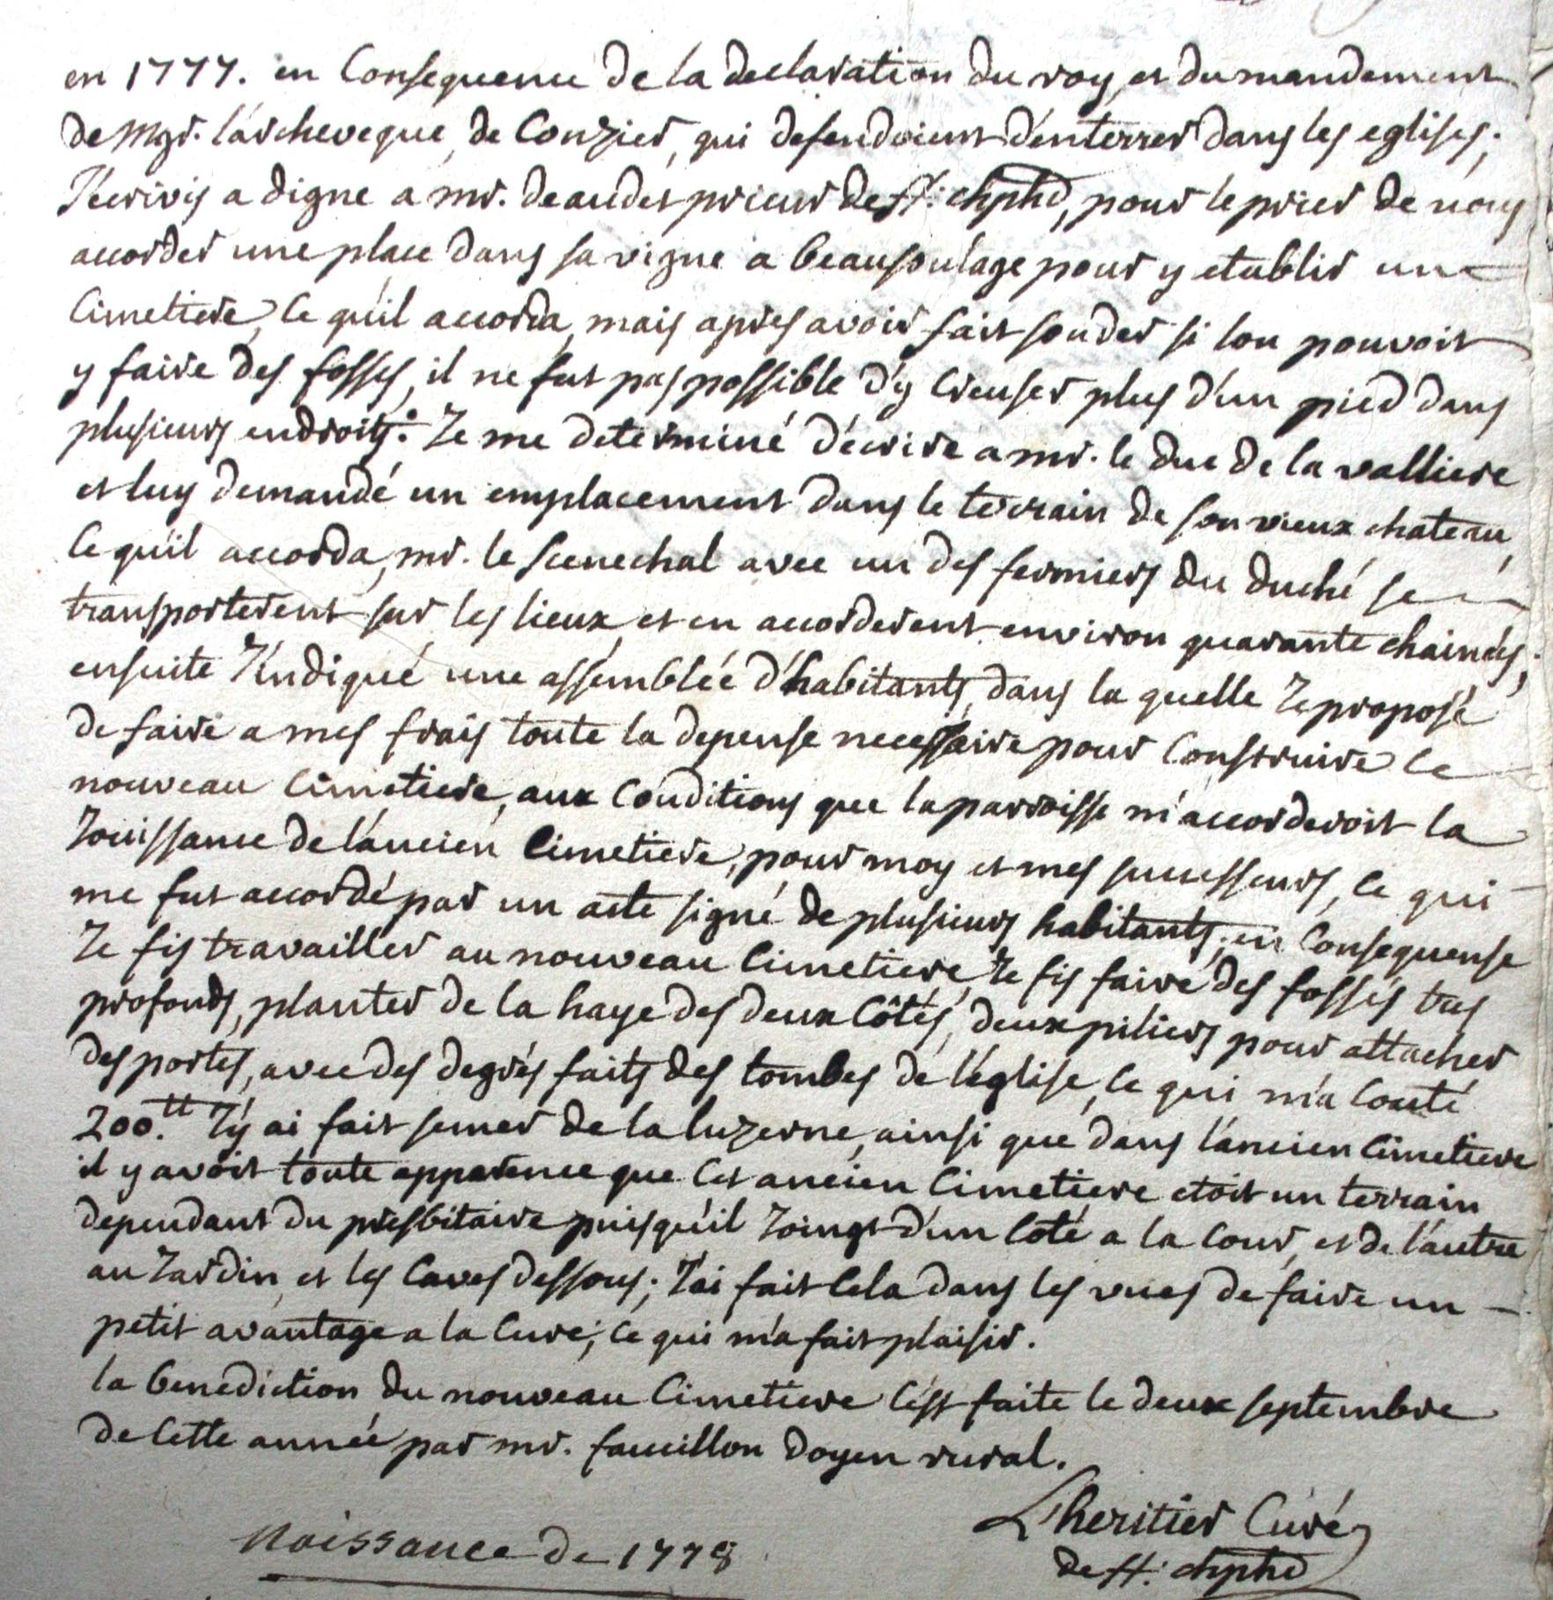 en 1777. en Consequence de la declaration du roy, et du mandement
de Mgr. l'archeveque, de Conzier, qui defendoient d'enterrer dans les eglises,
J'ecrivis a digne a mr. deaudet prieur de st: chphe, pour le prier de nous
accorder une place dans sa vigne a beausoulage pour y etablir un
Cimetiere, Ce qu'il accorda, mais apres avoir fait sonder si lon pouvoit
y faire des fosses, il ne fut pas possible d'y Creuser plus d'un pied dans
plusieurs endroits. Je me determiné d'ecrire a mr. le duc de la valliere
et luy demandé un emplacement dans le terrain de son vieux chateau,
Ce qu'il accorda, mr. le Scenechal avec un des fermiers du duché se
transporterent sur les lieux, et en accorderent environ quarante chainées;
ensuite J'indiqué une assemblée d'habitants, dans la quelle Je proposé
de faire a mes frais toute la depense necessaire pour Construire Ce
nouveau Cimetiere, aux Conditions que la parroisse m'accorderoit la
Jouissance de l'ancien Cimetiere, pour moy et mes successeurs, Ce qui
me fut accordé par un acte signé de plusieurs habitants, en Consequense
Je fis travailler au nouveau Cimetiere, Je fis faire des fossés tres
profonds, planter de la haye des deux Côtés, deux piliers pour attacher
des portes, avec des degrés faits des tombes de l'église, Ce qui m'a Couté
200.tt J'y ai fait semer de la luzerne, ainsi que dans l'ancien Cimetiere
il y avoit toute apparence que Cet ancien Cimetiere etoit un terrain
dependant du presbitaire puisqu'il Joingt d'un Coté a la Cour, et de l'autre
au Jardin, et les Caves dessous; J'ai fait Cela dans les vues de faire un
petit avantage a la Cure, Ce qui m'a fait plaisir.
la benediction du nouveau Cimetiere C'est faite le deux septembre
de Cette année par mr. faucillon doyen rural.
Lheritier Curé
de st: chphe
Naissance de 1778